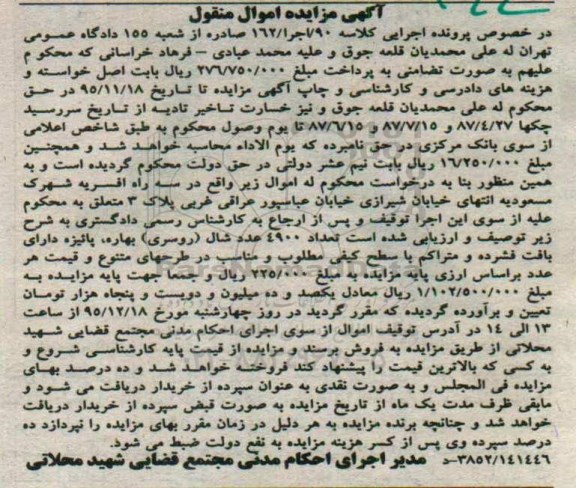 آگهی مزایده اموال منقول
در خصوص پرونده اجرایی کلاسه ۹۰/اجرا/۱۶۲ صادره از شعبه ۱۵۵ دادگاه عمومی
تهران له علی محمدیان قلعه جوق و علیه محمد عبادی – فرهاد خراسانی که محکو م
علیهم به صورت تضامنی به پرداخت مبلغ ۲۷۶/۷۵۰/۰۰۰ ریال بابت اصل خواسته و
هزینه های دادرسی و کارشناسی و چاپ آگهی مزایده تا تاریخ ۹۵/۱۱/۱۸ در حق
محکوم له علی محمدیان قلعه جوق و نیز خسارت تاخیر تادیه از تاریخ سررسید
چکها ۸۷/۴/۲۷ و ۸۷/۷/۱۵ و ۸۷/۶/۱۵ تا یوم وصول محکوم به طبق شاخص اعلامی
از سوی بانک مرکزی در حق نامبرده که یوم الاداء محاسبه خواهد شد و همچنین
مبلغ ۱۶/۲۵۰/۰۰۰ ریال بابت نیم عشر دولتی در حق دولت محکوم گردیده است و به
همین منظور بنا به درخواست محکوم له اموال زیر واقع در سه راه افسریه شهرک
مسعودیه انتهای خیابان شیرازی خیابان عباسپور عراقی غربی پلاک ۳ متعلق به محکوم
علیه از سوی این اجرا توقیف و پس از ارجاع به کارشناس رسمی دادگستری به شرح
زیر توصیف و ارزیابی شده است تعداد ۴۹۰۰ عدد شال (روسری) بهاره، پائیزه دارای
بافت فشرده و متراکم با سطح کیفی مطلوب و مناسب در طرحهای متنوع و قیمت هر
عدد براساس ارزی پایه مزایده به مبلغ ۲۲۵/۰۰۰ ریال و جمعا جهت پایه مزایده به
مبلغ ۱/۱۰۲/۵۰۰/۰۰۰ ریال معادل یکصد و ده میلیون و دویست و پنجاه هزار تومان
تعیین و برآورده گردیده که مقرر گردید در روز چهارشنبه مورخ ۹۵/۱۲/۱۸ از ساعت
۱۳ الی ۱۴ در آدرس توقیف اموال از سوی اجرای احکام مدنی مجتمع قضایی شهید
محلاتی از طریق مزایده به فروش برسند و مزایده از قیمت پایه کارشناسی شروع و
به کسی که بالاترین قیمت را پیشنهاد کند فروخته خواهد شد و ده درصد بهای
مزایده فی المجلس و به صورت نقدی به عنوان سپرده از خریدار دریافت می شود و
مابقی ظرف مدت یک ماه از تاریخ مزایده به صورت قبض سپرده از خریدار دریافت
خواهد شد و چنانچه برنده مزایده به هر دلیل در زمان مقرر بهای مزایده را نپردازد ده
درصد سپرده وی پس از کسر هزینه مزایده به نفع دولت ضبط می شود.
۳۸۵۲/۱۴۱۴۴۶–د مدیر اجرای احکام مدنی مجتمع قضایی شهید محلاتی